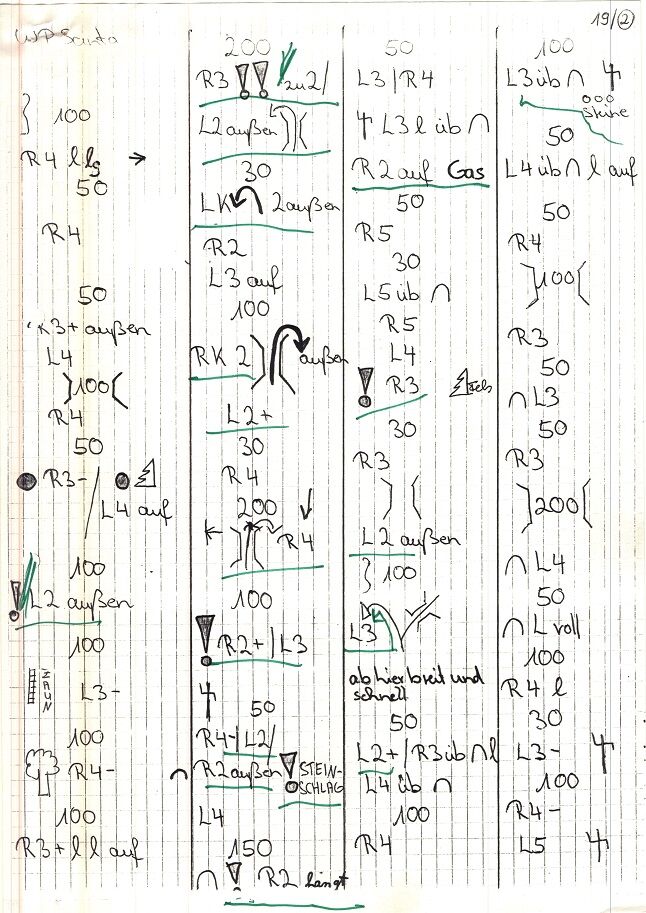 19/2
WP
100
R4 l l
50
R4
50
K3+ außen
L4
)100(
R4
50
R3-/
L4 auf
100
! L2 außen
100
ZAUN L3-
100
R4-
100
R3+ l l auf
200
R3 !! zu2/
L2 außen )(
30
LK 2außen
R2
L3 auf
100
RK 2 )( außen
L2+
30
R4
200
)( R4
100
! R2+/L3
50
R4-/L2/
R2außen ! STEIN-
SCHLAG
L4
150
∩ ! R2 hängt
50
L3/R4
L3 l üb ∩
R2 auf Gas
50
R5
30
L5 üb ∩
R5
L4
! R3 Fels
30
R3
)(
L2 außen
} 100
L3
ab hier breit und
schnell
50
L2+/R3üb ∩ l
L4 üb ∩
100
R4
100
L3üb ∩
ooo
Steine
50
L4üb ∩ l auf
50
R4
)100(
R3
50
∩ L3
50
R3
)200(
∩ L4
50
∩ L voll
100
R4 l
30
L3-
100
R4-
L5